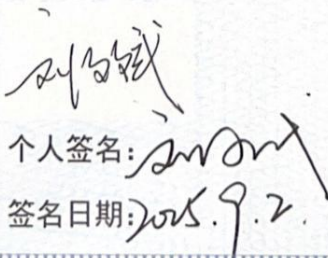 刘
个人签名:刘
签名日期:2025.9.2.